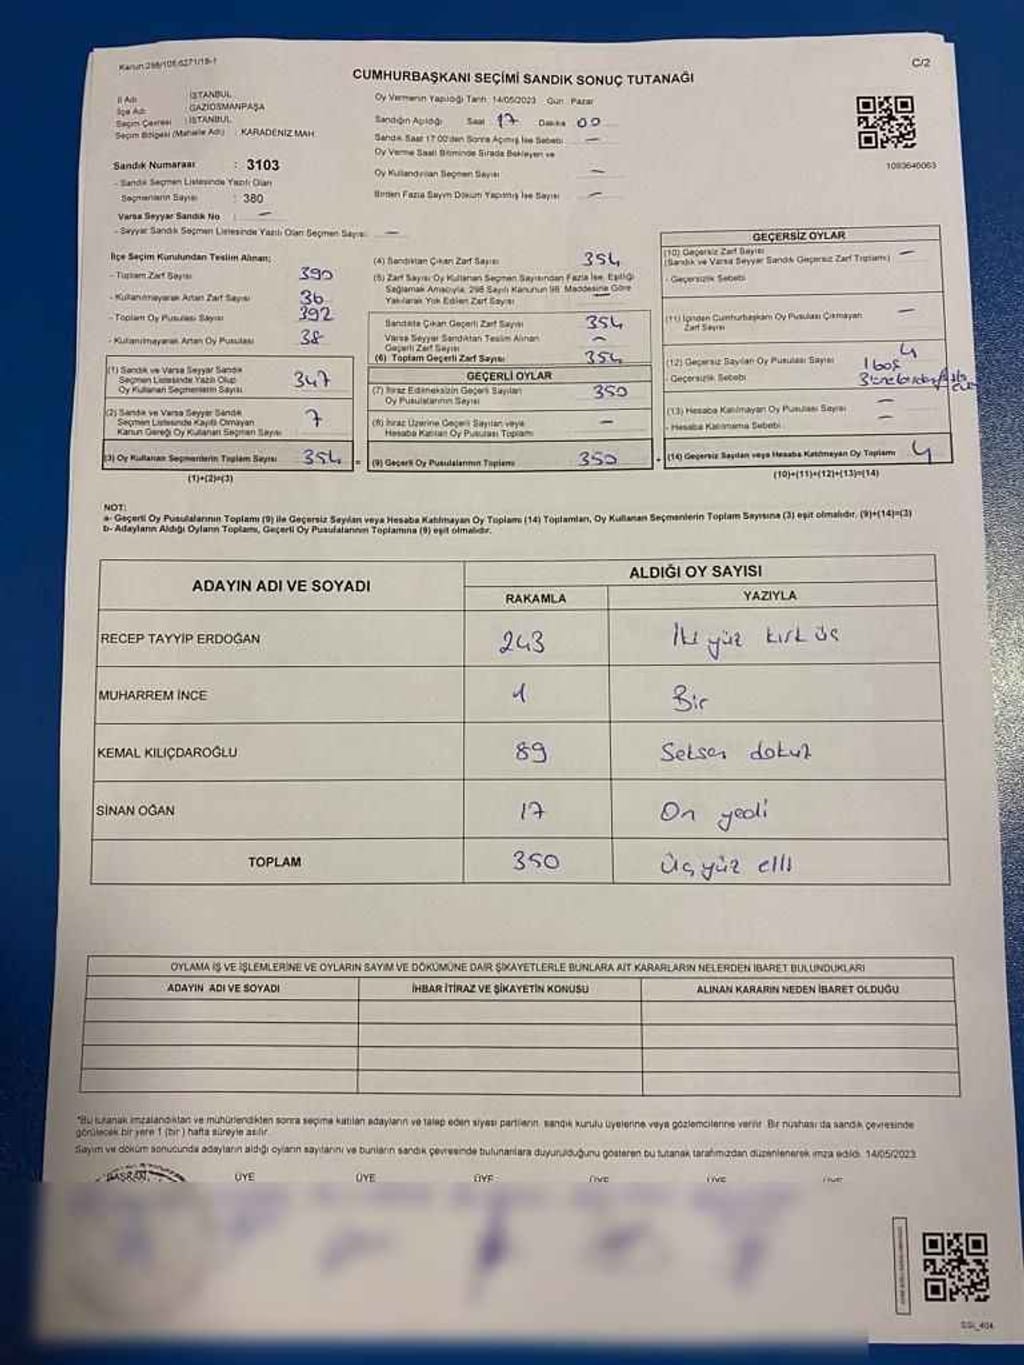 Karun:298/106,6271/18-1
C/2
CUMHURBAŞKANI SEÇİMİ SANDIK SONUÇ TUTANAĞI
İl Adı : İSTANBUL
İlçe Adı : GAZİOSMANPAŞA
Seçim Çevresi : İSTANBUL
Seçim Bölgesi (Mahalle Adı) : KARADENİZ MAH.
Sandık Numarası : 3103
- Sandık Seçmen Listesinde Yazılı Olan
Seçmenlerin Sayısı : 380
Varsa Seyyar Sandık No : —
- Seyyar Sandık Seçmen Listesinde Yazılı Olan Seçmen Sayısı: —
Oy Vermenin Yapıldığı Tarih: 14/05/2023 Gün : Pazar
Sandığın Açıldığı Saat 17 Dakika 00
Sandık Saat 17:00'den Sonra Açılmış İse Sebebi —
Oy Verme Saati Bitiminde Sırada Bekleyen ve
Oy Kullandırılan Seçmen Sayısı —
Birden Fazla Sayım Döküm Yapılmış İse Sayısı —
1093640063
İlçe Seçim Kurulundan Teslim Alınan;
- Toplam Zarf Sayısı 390
- Kullanılmayarak Artan Zarf Sayısı 36
- Toplam Oy Pusulası Sayısı 392
- Kullanılmayarak Artan Oy Pusulası 38
(1) Sandık ve Varsa Seyyar Sandık
Seçmen Listesinde Yazılı Olup
Oy Kullanan Seçmenlerin Sayısı 347
(2) Sandık ve Varsa Seyyar Sandık
Seçmen Listesinde Kayıtlı Olmayan
Kanun Gereği Oy Kullanan Seçmen Sayısı 7
(3) Oy Kullanan Seçmenlerin Toplam Sayısı 354 =
(1)+(2)=(3)
(4) Sandıktan Çıkan Zarf Sayısı 354
(5) Zarf Sayısı Oy Kullanan Seçmen Sayısından Fazla İse, Eşitliği
Sağlamak Amacıyla, 298 Sayılı Kanunun 98. Maddesine Göre
Yakılarak Yok Edilen Zarf Sayısı —
Sandıkta Çıkan Geçerli Zarf Sayısı 354
Varsa Seyyar Sandıktan Teslim Alınan
Geçerli Zarf Sayısı —
(6) Toplam Geçerli Zarf Sayısı 354
GEÇERLİ OYLAR
(7) İtiraz Edilmeksizin Geçerli Sayılan
Oy Pusulalarının Sayısı 350
(8) İtiraz Üzerine Geçerli Sayılan veya
Hesaba Katılan Oy Pusulası Toplamı —
(9) Geçerli Oy Pusulalarının Toplamı 350 +
GEÇERSİZ OYLAR
(10) Geçersiz Zarf Sayısı
(Sandık ve Varsa Seyyar Sandık Geçersiz Zarf Toplamı) —
- Geçersizlik Sebebi
(11) İçinden Cumhurbaşkanı Oy Pusulası Çıkmayan
Zarf Sayısı —
(12) Geçersiz Sayılan Oy Pusulası Sayısı 4
- Geçersizlik Sebebi 1 boş
(13) Hesaba Katılmayan Oy Pusulası Sayısı —
- Hesaba Katılmama Sebebi —
(14) Geçersiz Sayılan veya Hesaba Katılmayan Oy Toplamı 4
(10)+(11)+(12)+(13)=(14)
NOT:
a- Geçerli Oy Pusulalarının Toplamı (9) ile Geçersiz Sayılan veya Hesaba Katılmayan Oy Toplamı (14) Toplamları, Oy Kullanan Seçmenlerin Toplam Sayısına (3) eşit olmalıdır. (9)+(14)=(3)
b- Adayların Aldığı Oyların Toplamı, Geçerli Oy Pusulalarının Toplamına (9) eşit olmalıdır.
ADAYIN ADI VE SOYADI
ALDIĞI OY SAYISI
RAKAMLA YAZIYLA
RECEP TAYYİP ERDOĞAN 243 İki yüz kırk üç
MUHARREM İNCE 1 Bir
KEMAL KILIÇDAROĞLU 89 Seksen dokuz
SİNAN OĞAN 17 On yedi
TOPLAM 350 Üç yüz elli
OYLAMA İŞ VE İŞLEMLERİNE VE OYLARIN SAYIM VE DÖKÜMÜNE DAİR ŞİKAYETLERLE BUNLARA AİT KARARLARIN NELERDEN İBARET BULUNDUKLARI
ADAYIN ADI VE SOYADI İHBAR İTİRAZ VE ŞİKAYETİN KONUSU ALINAN KARARIN NEDEN İBARET OLDUĞU
*Bu tutanak imzalandıktan ve mühürlendikten sonra seçime katılan adayların ve talep eden siyasi partilerin, sandık kurulu üyelerine veya gözlemcilerine verilir. Bir nüshası da sandık çevresinde
görülecek bir yere 1 (bir) hafta süreyle asılır.
Sayım ve döküm sonucunda adayların aldığı oyların sayılarını ve bunların sandık çevresinde bulunanlara duyurulduğunu gösteren bu tutanak tarafımızdan düzenlenerek imza edildi. 14/05/2023
BAŞKAN ÜYE ÜYE ÜYE ÜYE ÜYE ÜYE